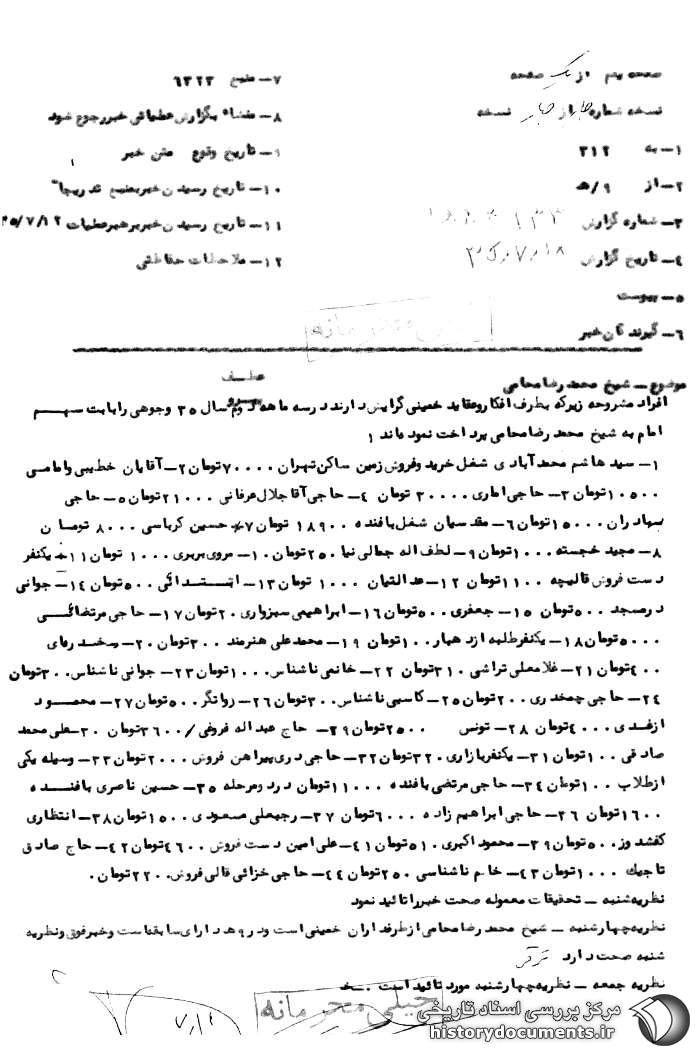 صفحه یکم از یک صفحه
نسخه شماره چهار از چهار نسخه
۱ـ به ۳۱۲
۲ـ از ۹/هـ
۳ـ شماره گزارش
۴ـ تاریخ گزارش ۳۵٫۷٫۱۸
۵ـ پیوست
۶ـ گیرندگان خبر
۷ـ منبع ۶۳۲۳
۸ـ منشاء بگزارش عملیاتی خبر رجوع شود
۹ـ تاریخ وقوع متن خبر
۱۰ـ تاریخ رسیدن خبر بمنبع تدریجا"
۱۱ـ تاریخ رسیدن خبر برهبر عملیات ۳۵/۷/۱۲
۱۲ـ ملاحظات حفاظتی
خیلی محرمانه
موضوع ـ شیخ محمد رضا محامی
عطف
پیرو
افراد مشروحه زیر که بطرف افکار و عقاید خمینی گرایش دارند در سه ماهه دوم سال ۳۵ وجوهی را بابت سهم
امام به شیخ محمد رضا محامی پرداخت نموده اند ؛
۱ـ سید هاشم محمد آبادی شغل خرید و فروش زمین ساکن تهران ۷۰۰۰۰ تومان ۲ـ آقایان خطیبی و امامی
۱۰۵۰۰ تومان ۳ـ حاجی اماری ۳۰۰۰۰ تومان ۴ـ حاجی آقا جلال عرفانی ۲۱۰۰۰ تومان ۵ـ حاجی
بهاد ران ۱۵۰۰۰ تومان ۶ـ مقدسیان شغل بافنده ۱۸۹۰۰ تومان ۷ـ حسین کرباسی ۸۰۰۰ تومان
۸ـ مجید خجسته ۱۰۰۰ تومان ۹ـ لطف اله جمالی نیا ۲۵۰ تومان ۱۰ـ مروی بربری ۱۰۰۰ تومان ۱۱ـ یکنفر
دست فروش قالیچه ۱۱۰۰ تومان ۱۲ـ عدالتیان ۱۰۰۰ تومان ۱۳ـ ابتدائی ۵۰۰ تومان ۱۴ـ جوانی
در مسجد ۵۰۰ تومان ۱۵ـ جعفری ۵۰۰ تومان ۱۶ـ ابراهیمی سبزواری ۲۰ تومان ۱۷ـ حاجی مرتضائی
۵۰۰۰ تومان ۱۸ـ یکنفر طلبه از دهبار ۱۰۰ تومان ۱۹ـ محمد علی هنرمند ۳۰۰ تومان ۲۰ـ
۴۰۰ تومان ۲۱ـ غلامعلی تراشی ۳۱۰ تومان ۲۲ـ خانمی ناشناس ۱۰۰۰ تومان ۲۳ـ جوانی ناشناس ۳۰۰ تومان
۲۴ـ حاجی چمخدری ۲۰۰ تومان ۲۵ـ کاسبی ناشناس ۳۰۰ تومان ۲۶ـ رواتگر ۵۰۰ تومان ۲۷ـ محمود
ازغدی ۴۰۰۰ تومان ۲۸ـ تونس ۲۵۰۰ تومان ۲۹ـ حاج عبداله فروغی /۳۶۰۰ تومان ۳۰ـ علی محمد
صادقی ۱۰۰ تومان ۳۱ـ یکنفر بازاری ۳۲۰ تومان ۳۲ـ حاجی دری پیراهن فروش ۲۰۰۰ تومان ۳۳ـ وسیله یکی
از طلاب ۱۰۰ تومان ۳۴ـ حاجی مرتضی بافنده ۱۱۰۰۰ تومان در دو مرحله ۳۵ـ حسین ناصری بافنده
۱۶۰۰ تومان ۳۶ـ حاجی ابراهیم زاده ۶۰۰۰ تومان ۳۷ـ رجبعلی مسعودی ۱۵۰۰ تومان ۳۸ـ انتظاری
کفشدوز ۵۰۰ تومان ۳۹ـ محمود اکبری ۵۱۰ تومان ۴۱ـ علی امین دست فروش ۴۶۰۰ تومان ۴۲ـ حاج صادق
تاجیک ۱۰۰۰ تومان ۴۳ـ خانم ناشناسی ۲۵۰ تومان ۴۴ـ حاجی خزائی قالی فروش ۲۲۰ تومان .
نظریه شنبه ـ تحقیقات معموله صحت خبر را تائید نمود
نظریه چهارشنبه ـ شیخ محمد رضا محامی از طرفداران خمینی است و در ۹ هـ دارای سابقه است و خبر فوق و نظریه
شنبه صحت دارد
نظریه جمعه ـ نظریه چهارشنبه مورد تائید است .
خیلی محرمانه
مرکز بررسی اسناد تاریخی
historydocuments.ir